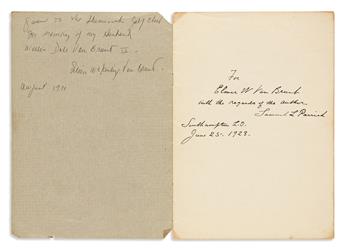 Given to the Shinnecock Golf Club
in memory of my husband
William Dale Van Brunt II.
Van Brunt.
August 19
For
Elmer W. Van Brunt
with the regards of the author
Samuel L Parrish
Southampton L.I.
June 25 - 1923.